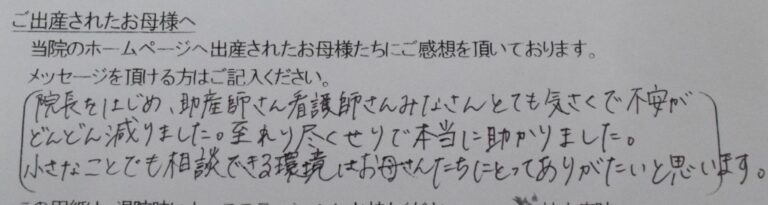 ご出産されたお母様へ
当院のホームページへ出産されたお母様たちにご感想を頂いております。
メッセージを頂ける方はご記入ください。
院長をはじめ、助産師さん看護師さんみなさんとても気さくで不安が
どんどん減りました。至れり尽くせりで本当に助かりました。
小さなことでも相談できる環境はお母さんたちにとってありがたいと思います。